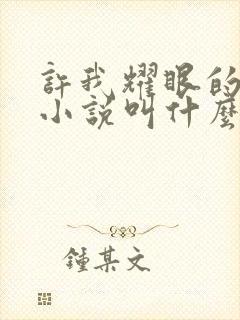 許我耀眼的
小說叫什麼
鍾某文